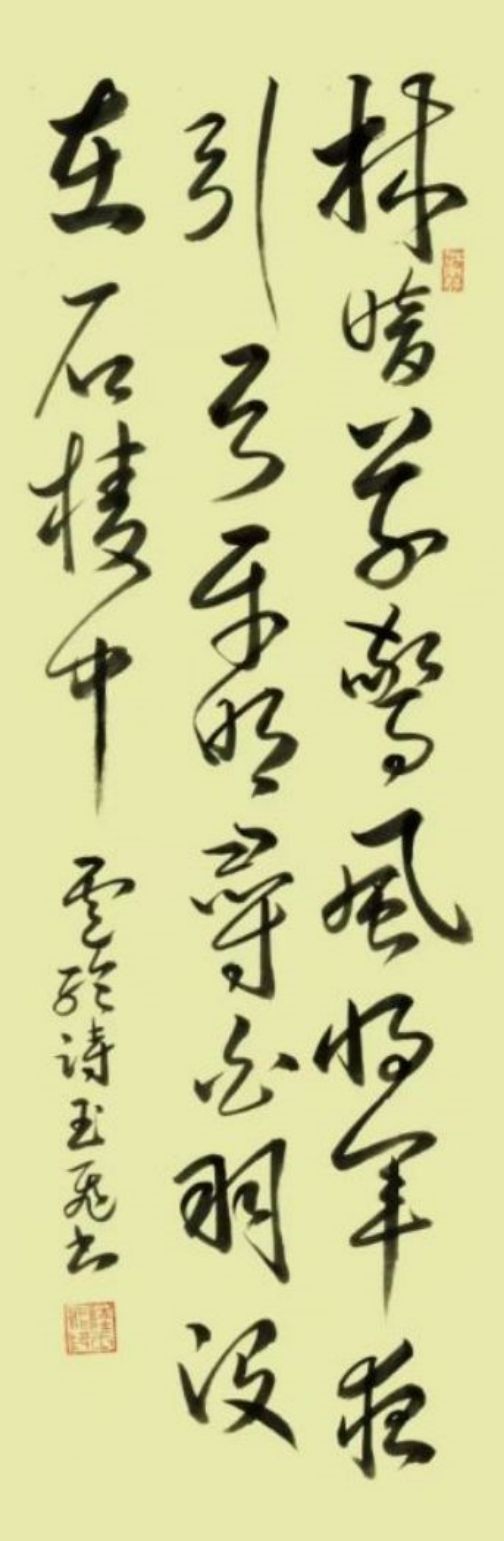 林暗草驚風將軍夜
引弓平明尋白羽没
在石棱中 盧綸詩玉飛书